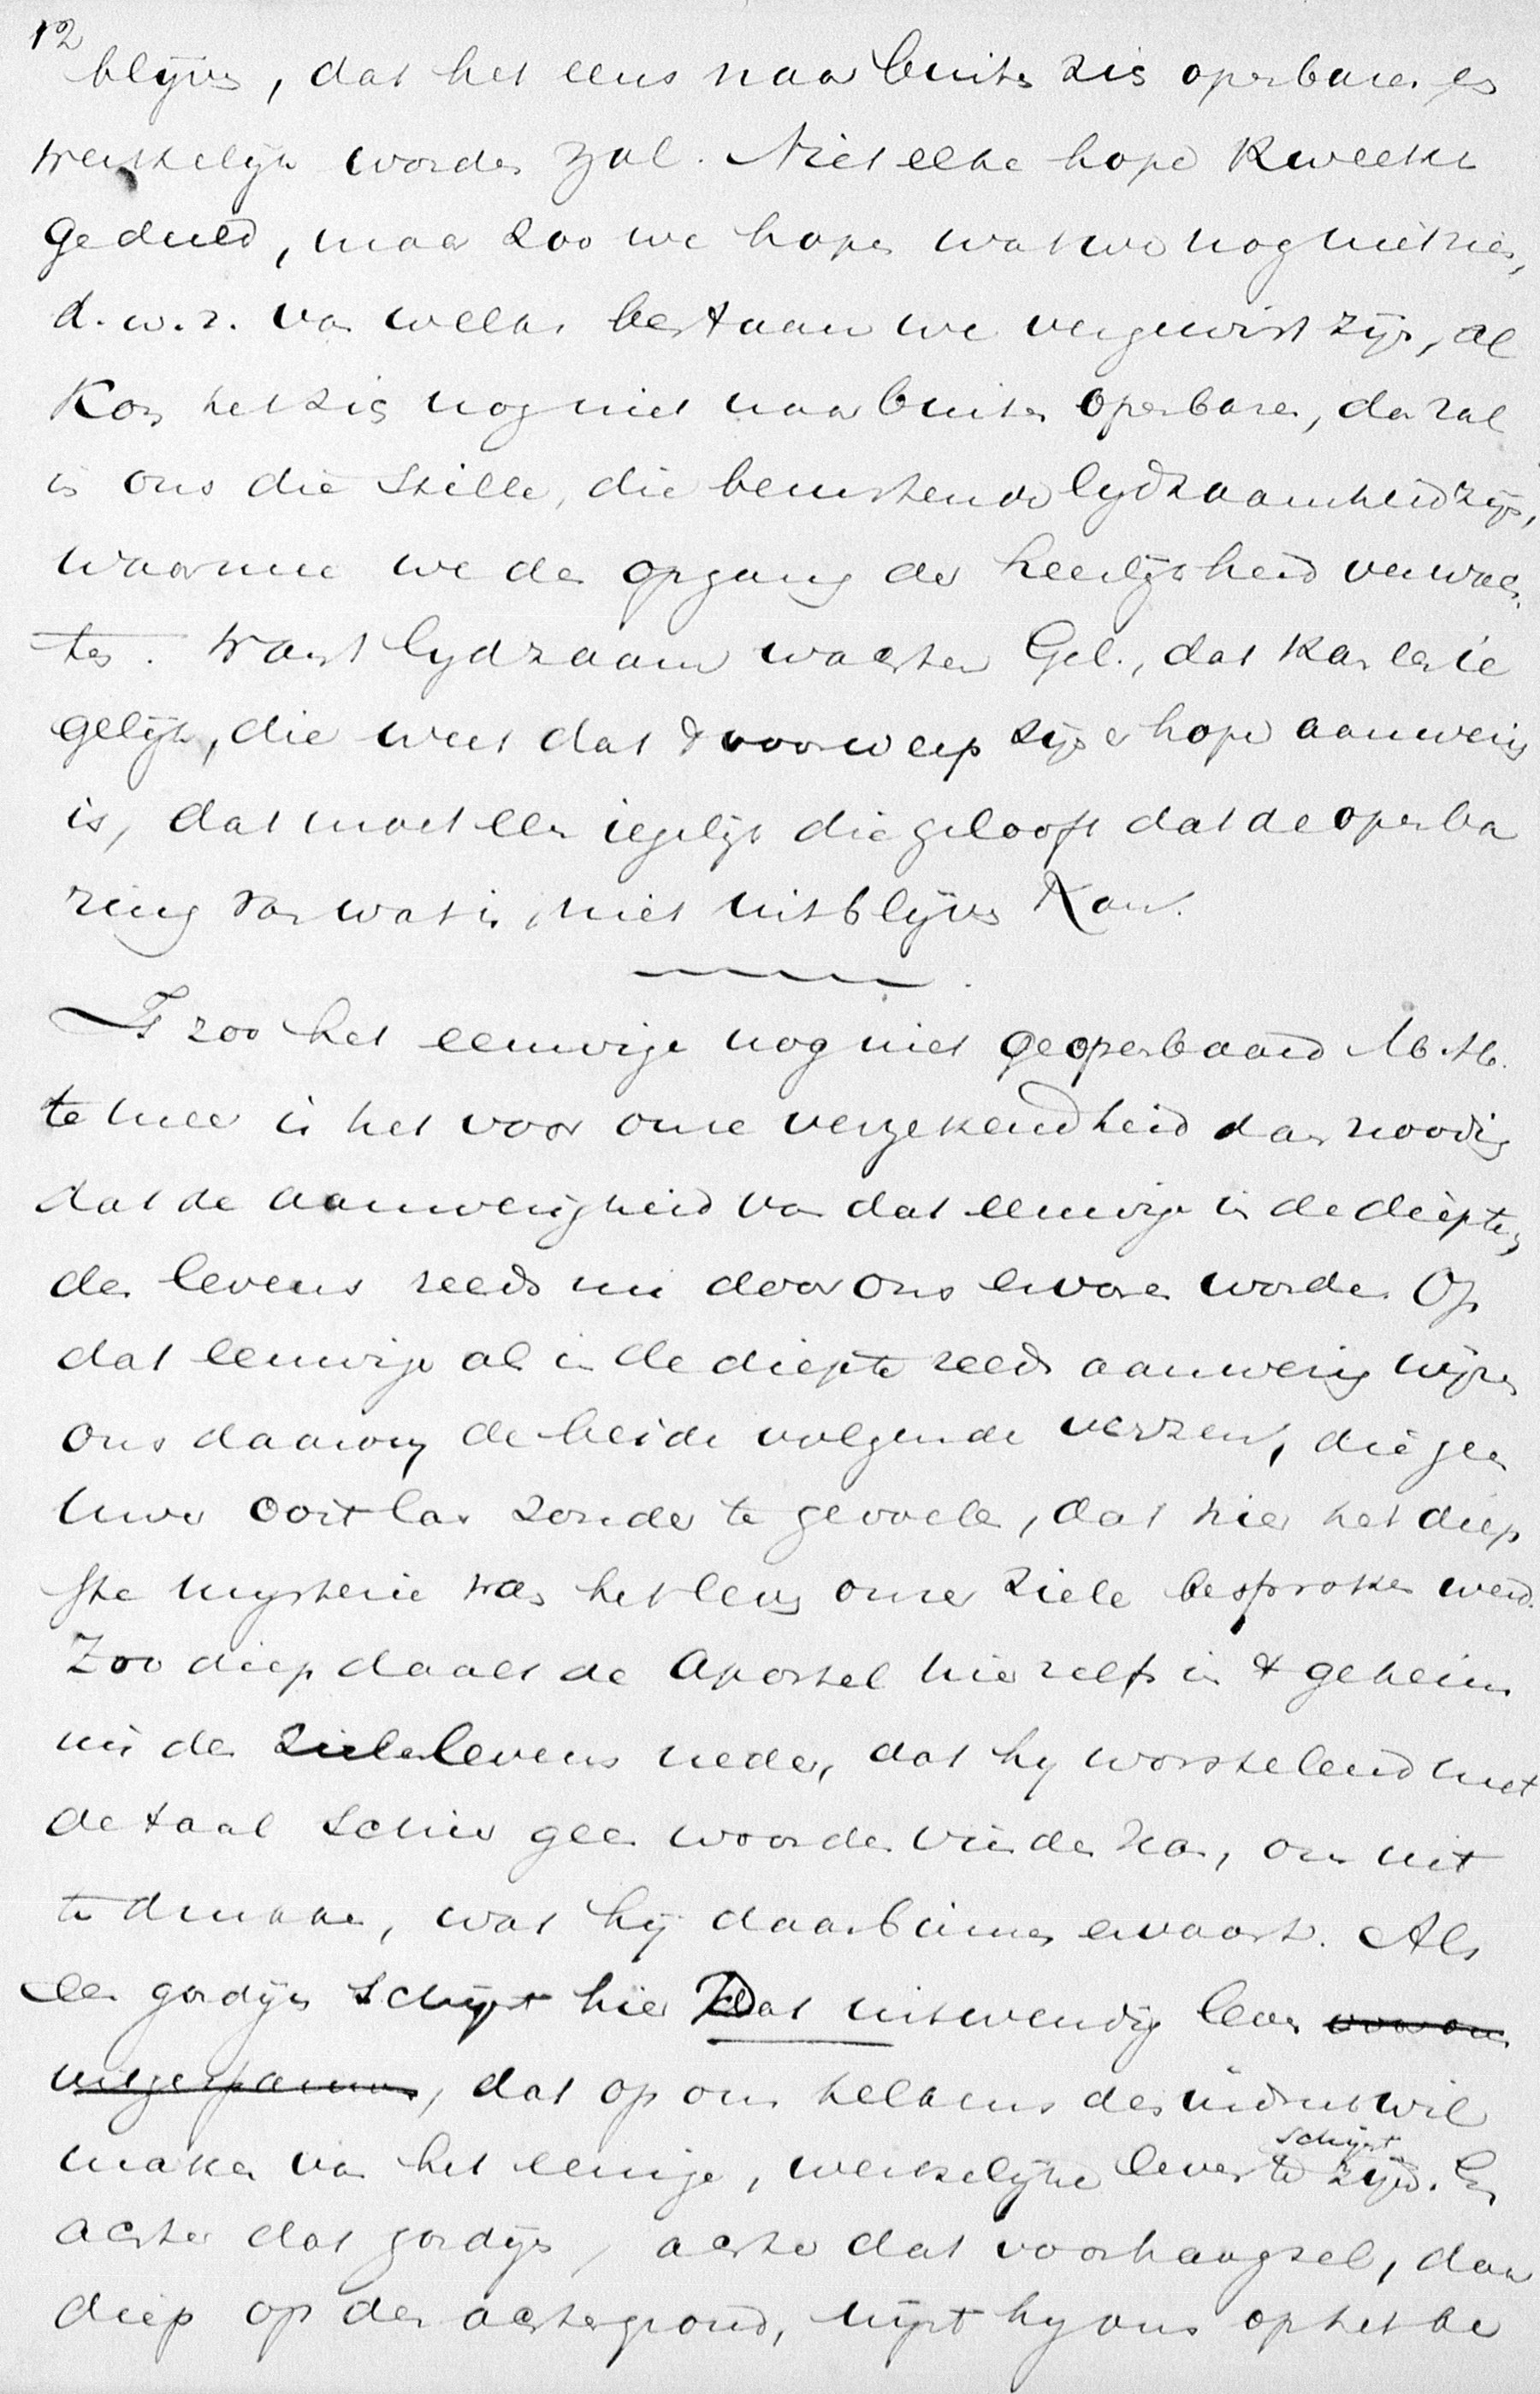 12
blijven, dat het eens naar buiten zich openbaren en
werkelijk worden zal. Niet elke hope kweekt
geduld, maar zoo we hopen wat we nog niet zien,
d.w.z. van welks bestaan we vergewist zijn, al
kon het zich nog niet naar buiten openbaren, dan zal
in ons die stille, die berustende lydzaamheid zijn,
waarmee we den opgang der heerlijkheid verwach-
ten. Want lydzaam wachten Gel., dat kan een ie
gelijk, die weet dat 't voorwerp zijner hope aanwezig
is, dat moet een iegelijk die gelooft dat de openba
ring van wat is, niet uitblijven kan.
Is zoo het eeuwige nog niet geopenbaard M.H.
te meer is het voor onze verzekerdheid dan noodig
dat de aanwezigheid van dat eeuwige in de diepten
des levens reeds nu door ons ervaren worde. Op
dat eeuwige als in de diepte reeds aanwezig wijzen
ons daarom de beide volgende verzen, die geen
uwer ooit las zonder te gevoelen, dat hier het diep
ste mysterie van het leven onzer ziele besproken werd.
Zoo diep daalt de Apostel hier zelfs in 't geheim
nis des zielelevens neder, dat hy worstelend met
de taal schier geen woorden vinden kan, om uit
te drukken, wat hij daarbinnen ervaart. Als
een gordijn schijnt hier dat uitwendig leven voor ons
uitgespannen, dat op ons telkens den indruk wil
maken van het eenige, werkelijke leven te schijnt zijn. En
achter dat gordijn, achter dat voorhangsel, daar
diep op den achtergrond, wijst hy ons op het be